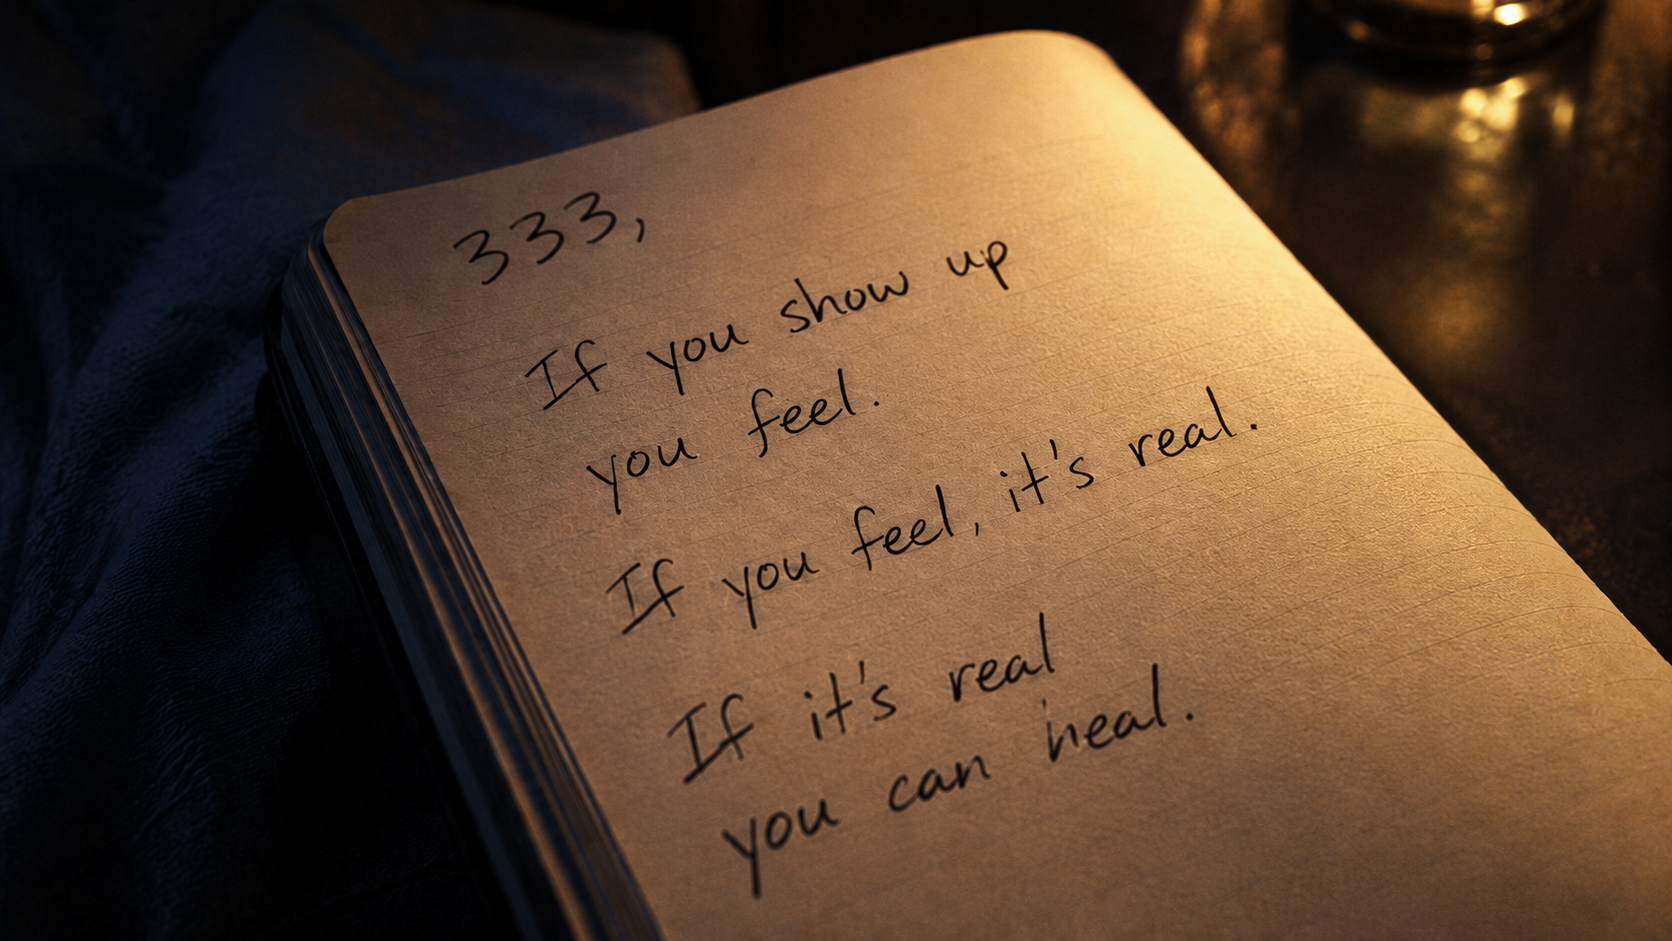 333,
If you show up
you feel.
If you feel, it's real.
If it's real
you can heal.